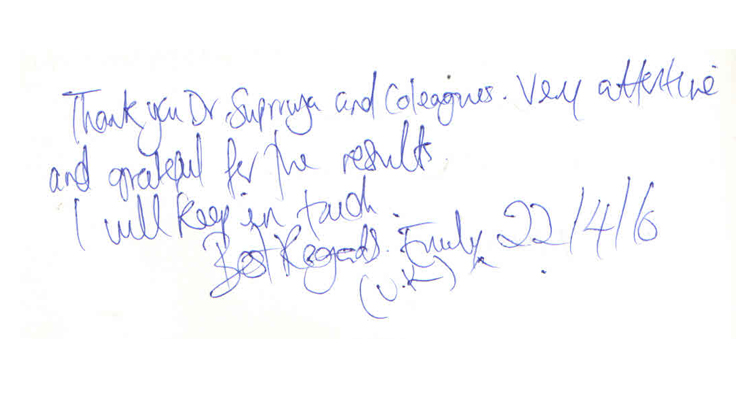 Thank you Dr. Supriya and Coleagues. Very attentive
and grateful for the results
I will keep in touch.
Best Regards. Emily, 22/4/6
(U.K)